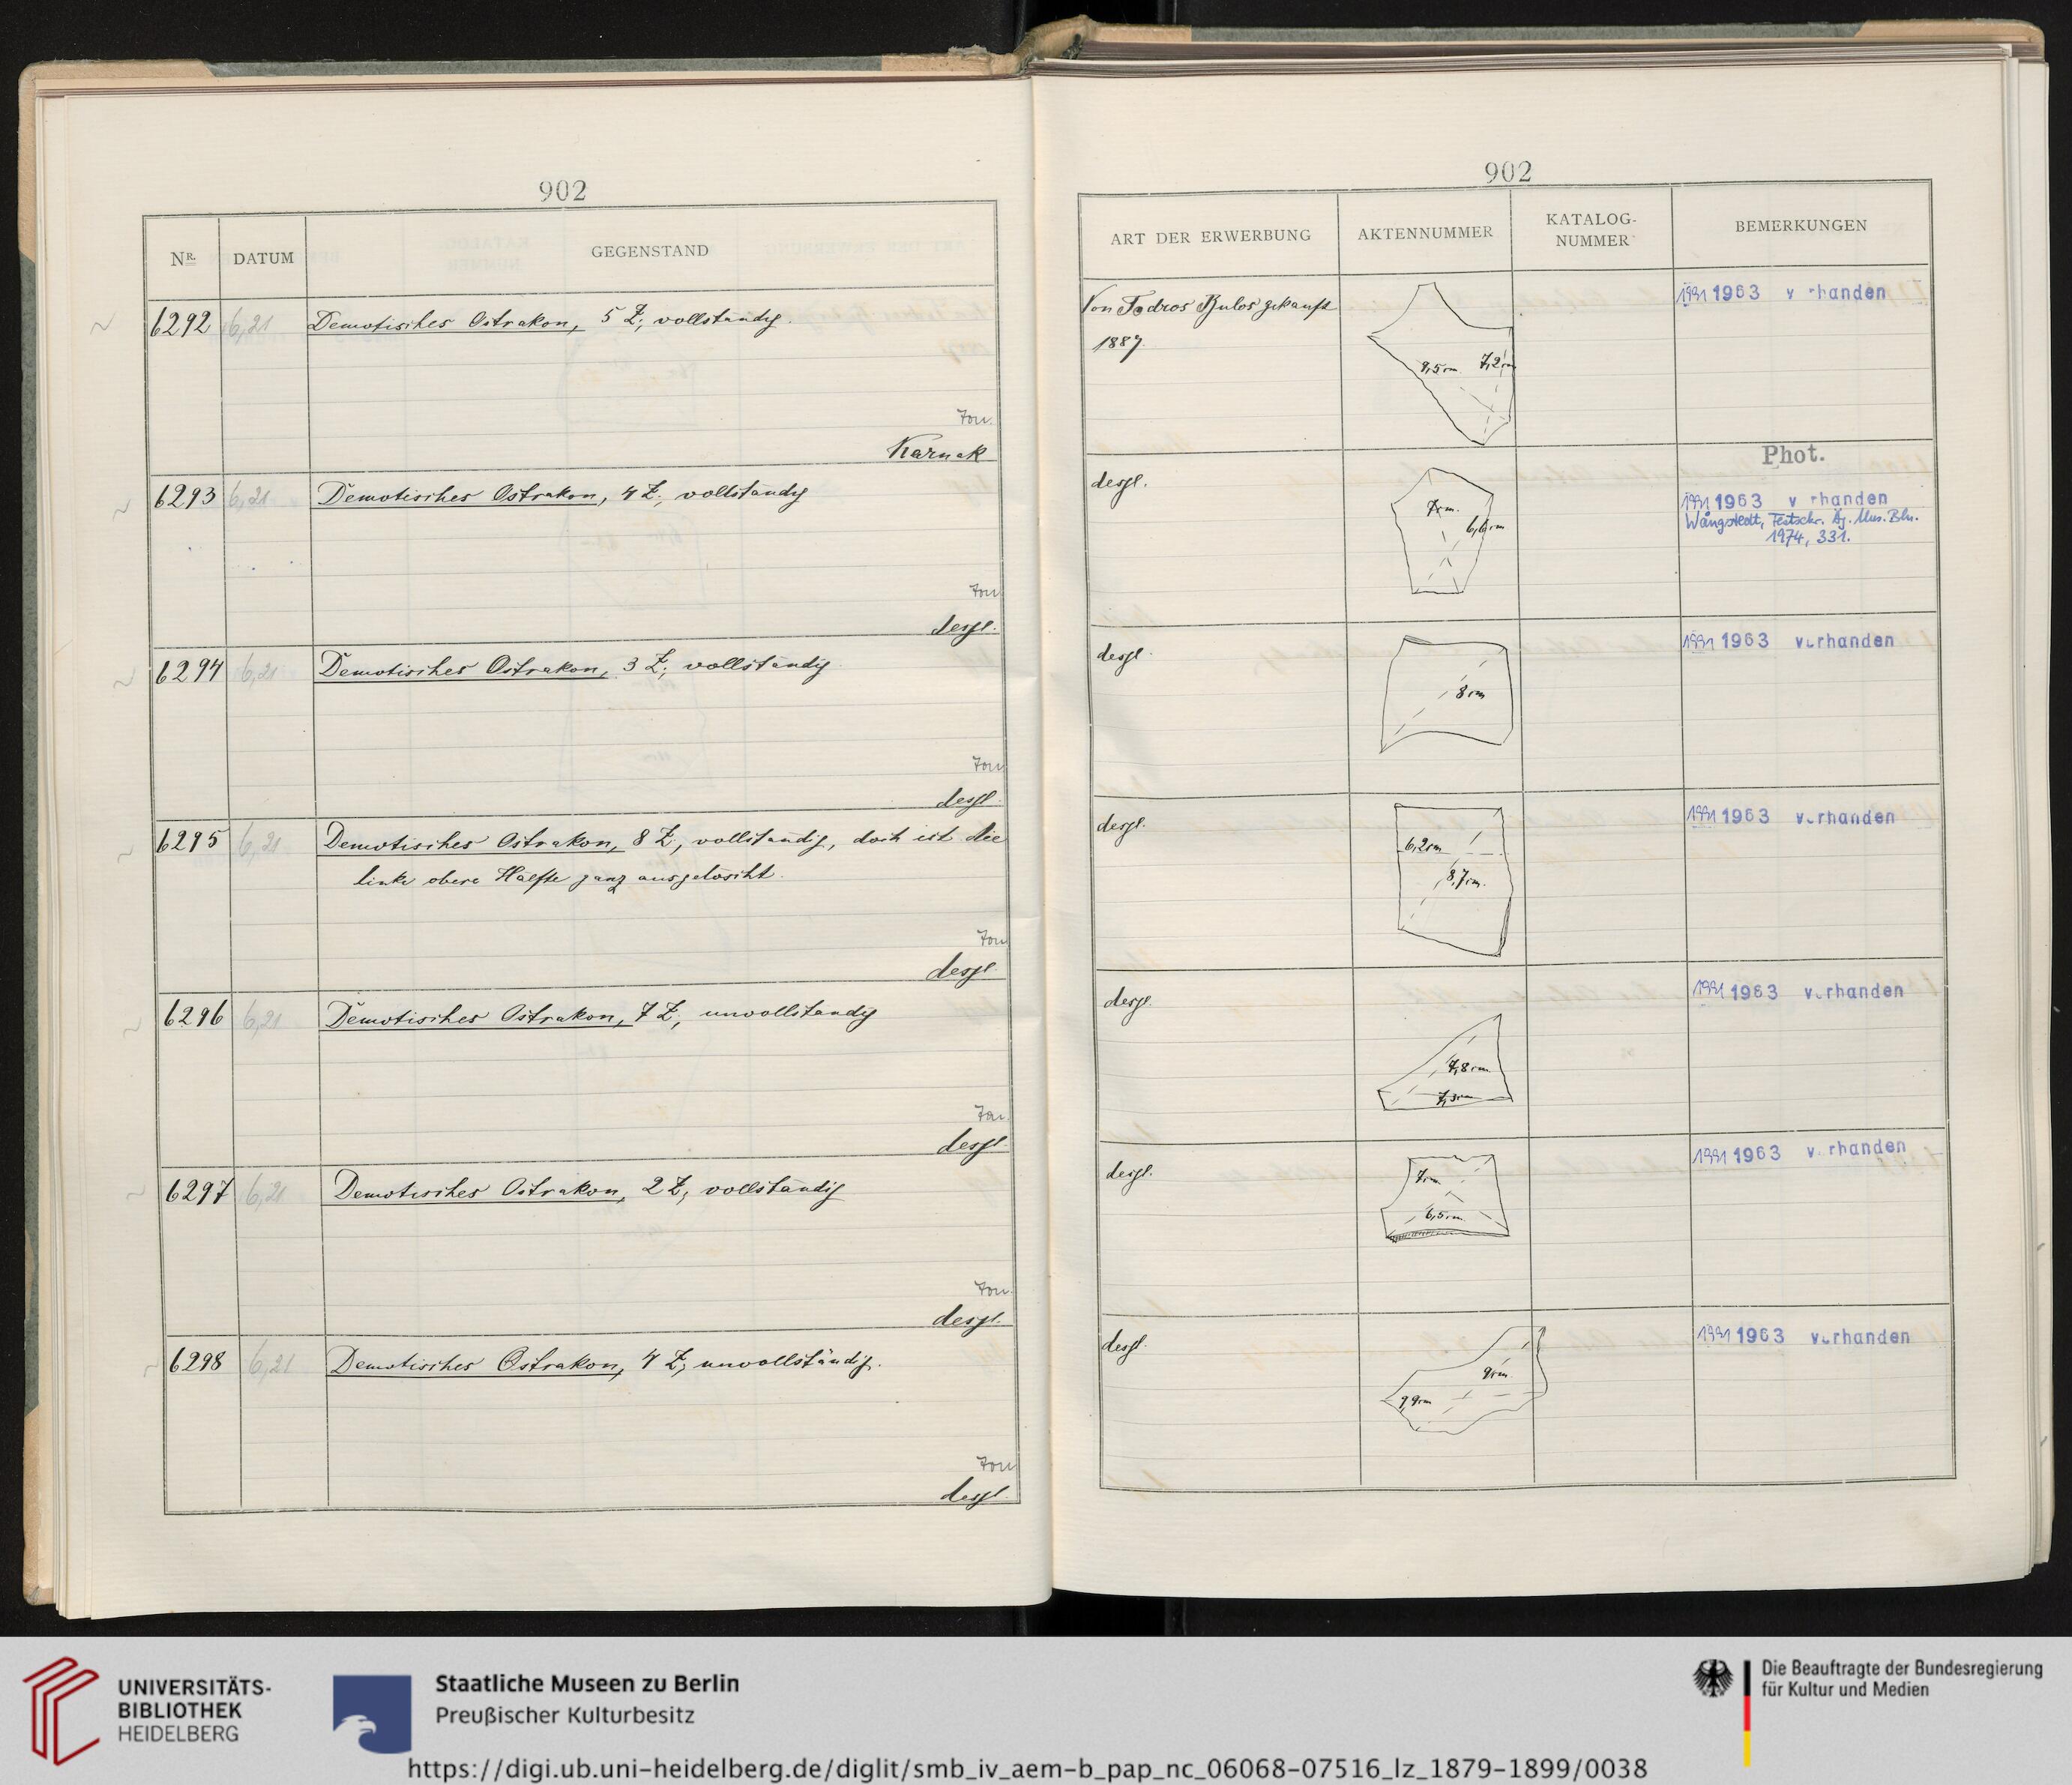 902
NR. DATUM GEGENSTAND
6292 6,21 Demotisches Ostrakon, 5 Z; vollständig.
Ton.
Karnak
6293 6,21 Demotisches Ostrakon, 4 Z; vollständig
Ton
desgl.
6294 6,21 Demotisches Ostrakon, 3 Z; vollständig.
Ton
desgl.
6295 6,21 Demotisches Ostrakon, 8 Z, vollständig, doch ist die
linke obere Hälfte ganz ausgelöscht.
Ton
desgl.
6296 6,21 Demotisches Ostrakon, 7 Z; unvollständig
Ton.
desgl.
6297 6,21 Demotisches Ostrakon, 2 Z, vollständig
Ton.
desgl.
6298 6,21 Demotisches Ostrakon, 4 Z; unvollständig.
Ton
desgl.
902
ART DER ERWERBUNG AKTENNUMMER KATALOG-
NUMMER BEMERKUNGEN
Von Todros Bulos gekauft
1887.
9,5cm. 7,2cm
1991 1963 v rhanden
desgl.
7cm.
6,6cm
Phot.
1991 1963 v rhanden
Wångstedt, Festschr. Äg. Mus. Bln.
1974, 331.
desgl.
8cm
1991 1963 vorhanden
desgl.
6,2cm
8,7cm.
1991 1963 vorhanden
desgl.
7,3cm
1991 1963 vorhanden
desgl.
7cm
6,5cm
1991 1963 v rhanden
desgl.
9cm.
1991 1963 vorhanden
UNIVERSITÄTS-
BIBLIOTHEK
HEIDELBERG
Staatliche Museen zu Berlin
Preußischer Kulturbesitz
Die Beauftragte der Bundesregierung
für Kultur und Medien
https://digi.ub.uni-heidelberg.de/diglit/smb_iv_aem-b_pap_nc_06068-07516_lz_1879-1899/0038